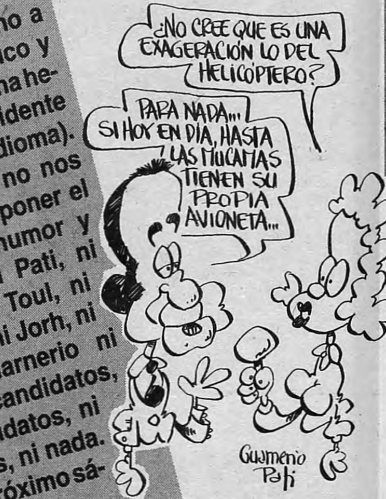 no a
ico y
na he-
idente
dioma).
no nos
poner el
humor y
i Pati, ni
Toul, ni
ni Jorh, ni
arnerio ni
candidatos,
idatos, ni
s, ni nada.
róximo sá-
¿NO CREE QUE ES UNA
EXAGERACIÓN LO DEL
HELICÓPTERO?
PARA NADA...
SI HOY EN DÍA, HASTA
LAS MUCAMAS
TIENEN SU
PROPIA
AVIONETA...
Guarnerio
Pati